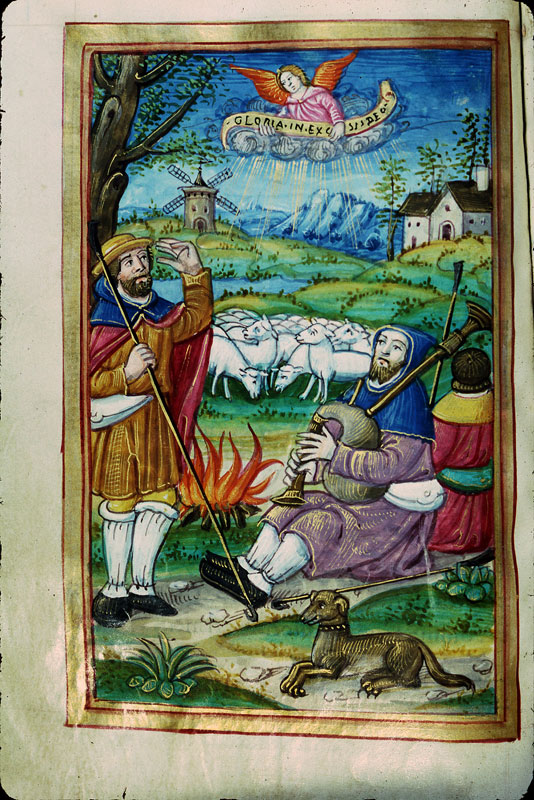 GLORIA·IN·EXC SIS·DEO